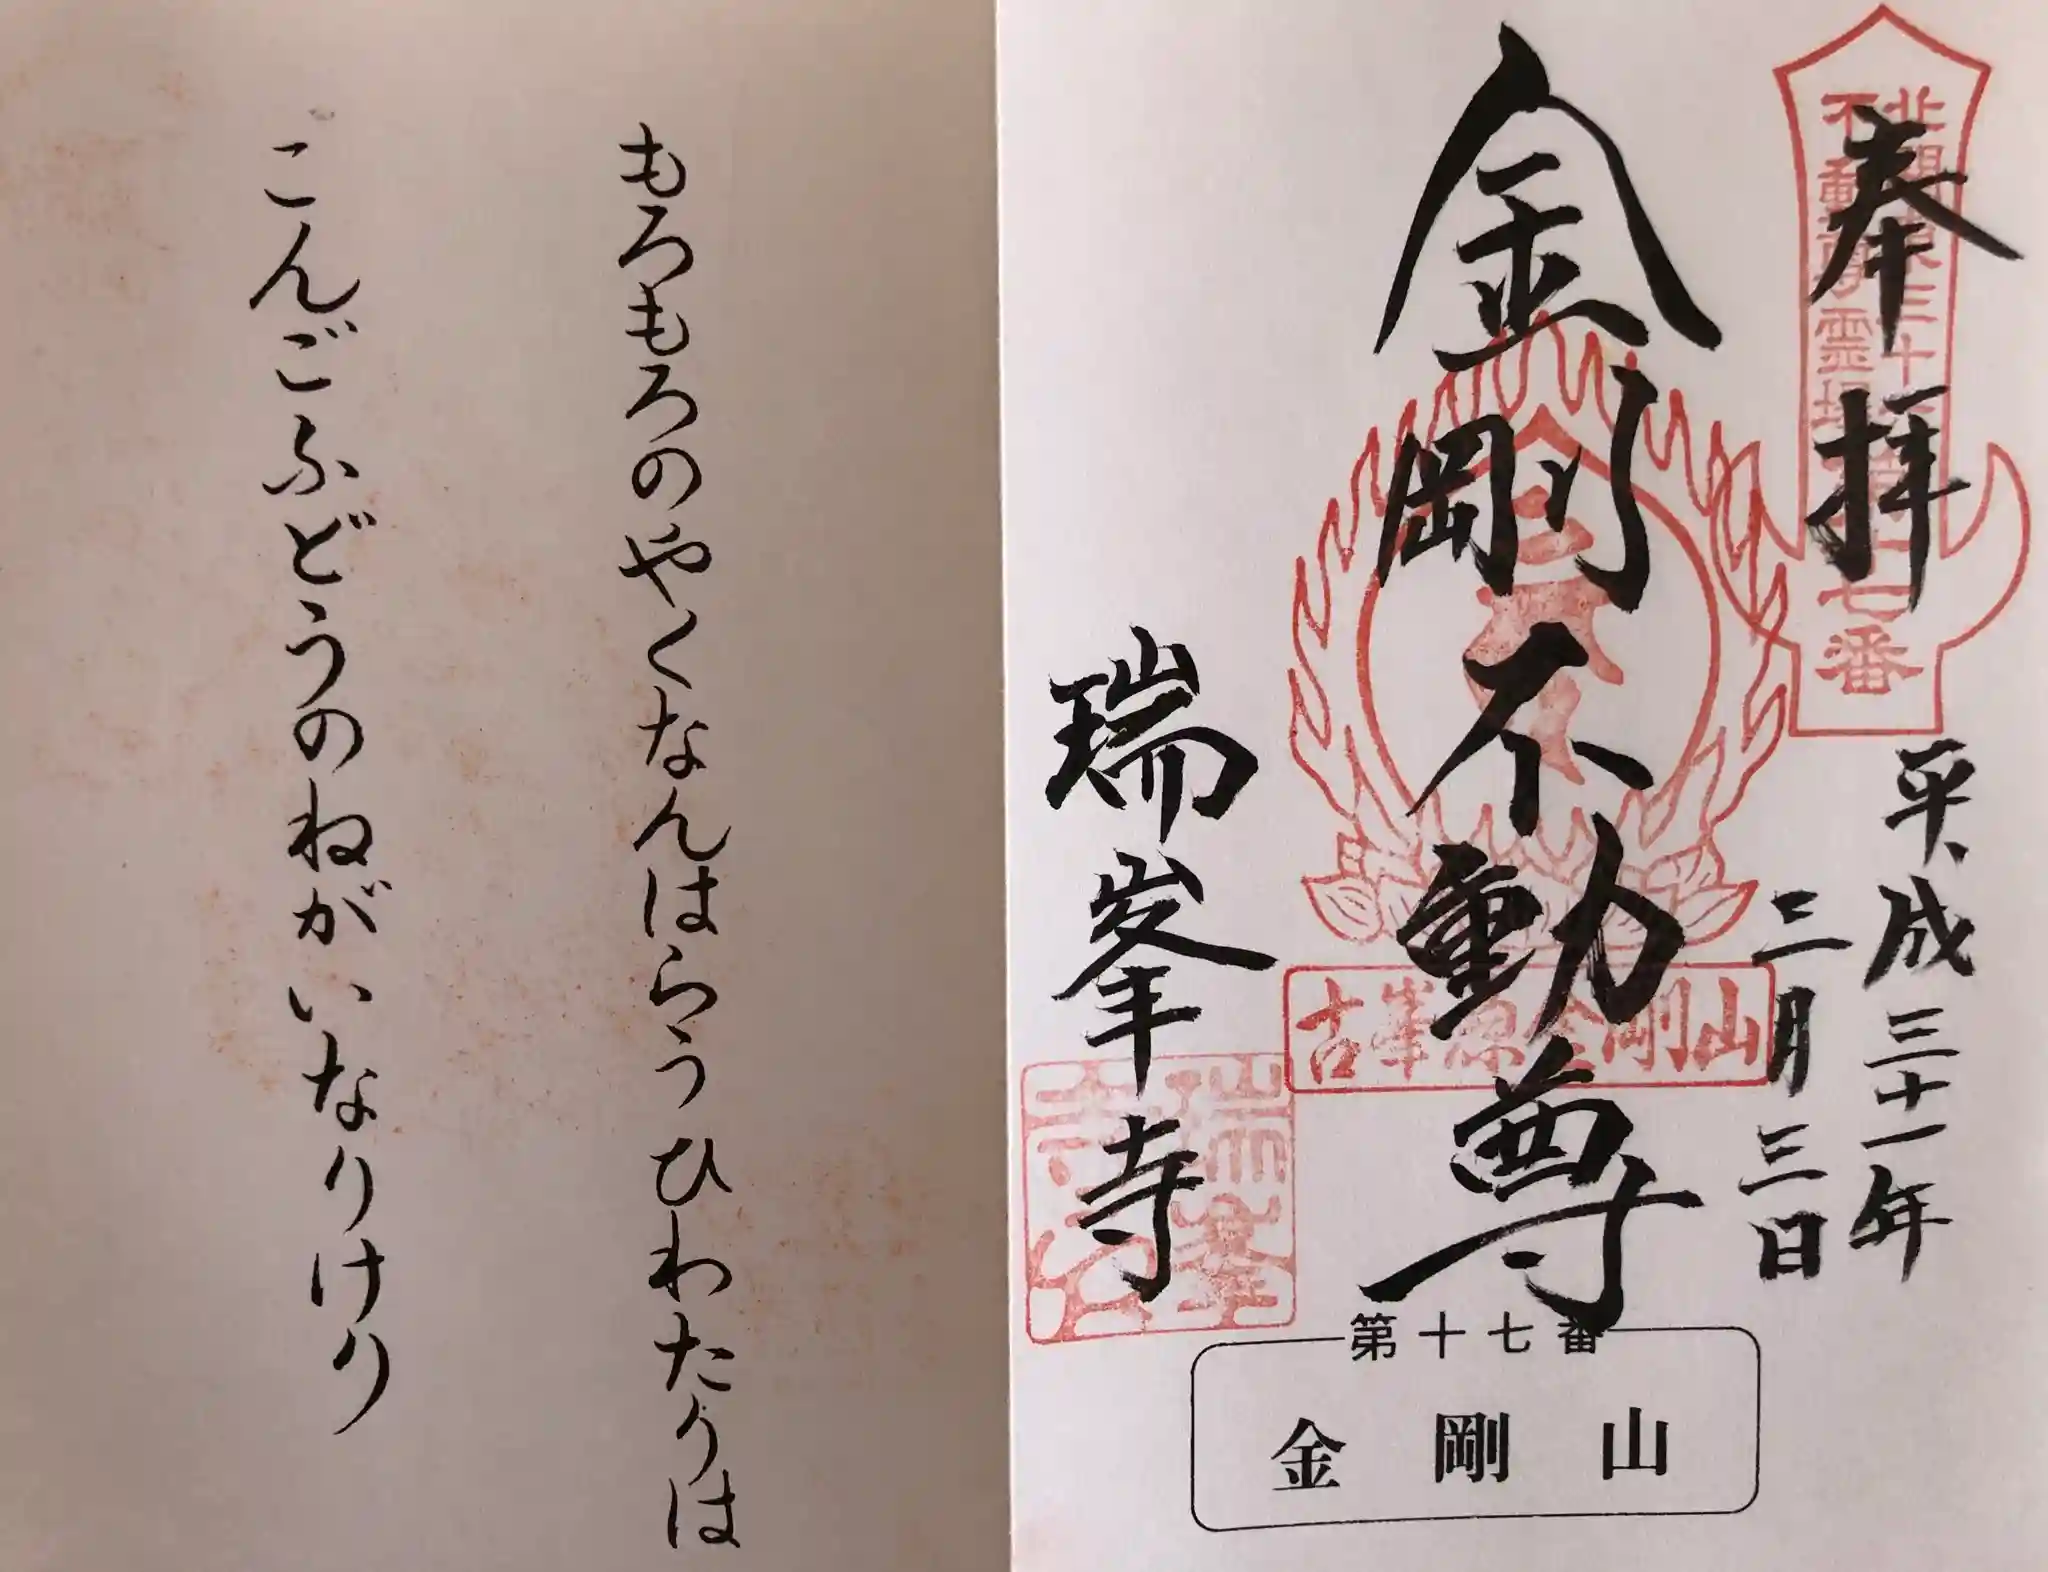 奉拝
北関東三十六
不動尊霊場
第十七番
平成三十一年
三月三日
金剛不動尊
古峯原金剛山
瑞峯寺
瑞峯
寺印
第十七番
金剛山
もろもろのやくなんはらうひわたりは
こんごふどうのねがいなりけり